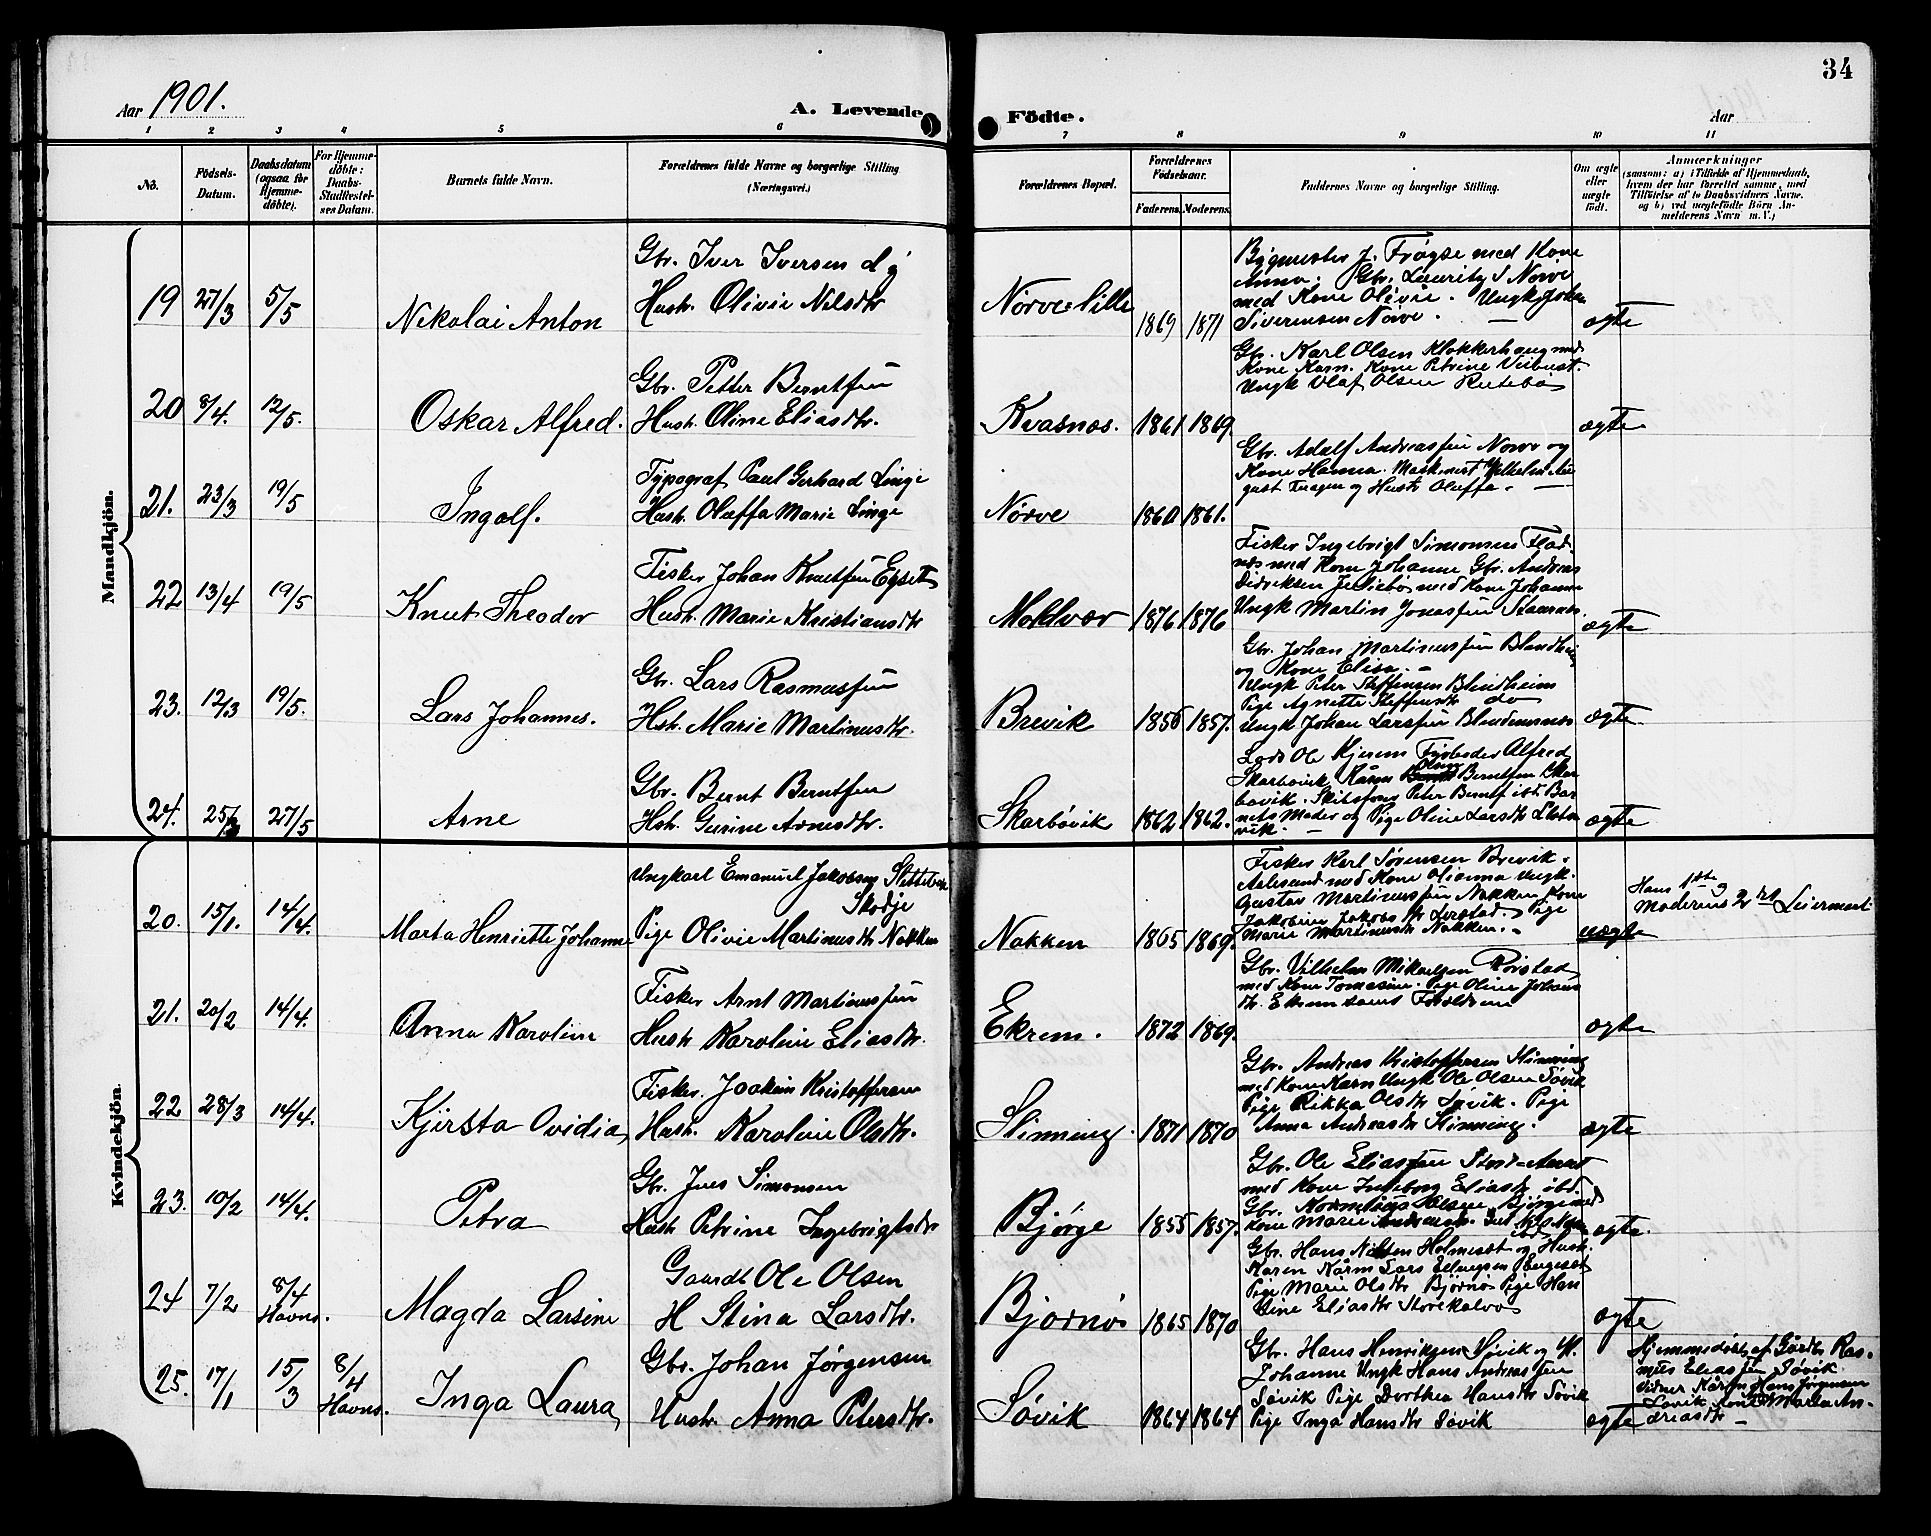 34
Aar 1901.
A. Levende Födte.
Aar
1 2 3 4 5 6 7 8 9 10 11
No.
Födsels-Datum.
Daabsdatum (ogsaa for Hjemme-döbte).
For Hjemme-döbte: Daabs-Stadfæstel-ses Datum.
Barnets fulde Navn.
Forældrenes fulde Navne og borgerlige Stilling
(Næringsvei.)
Forældrenes Bopæl.
Forældrenes Födselsaar.
Faderens. Moderens.
Faddernes Navne og borgerlige Stilling.
Om ægte eller uægte födt.
Anmærkninger
(saasom: a) i Tilfælde af Hjemmedaab,
hvem der har forrettet samme, med
Tilföielse af to Daabsvidners Navne.
og b) ved uægtefödte Börn An-
melderens Navn m. V.)
Mandkjön.
19 27/3 5/5 Nikolai Anton
Gbr. Iver Iversen
Hustr. Olivie Nilsdtr
Nørve lille 1869 1871
Bygmester J. Frøyse med Kone
Anna. Gbr. Lauritz S Nørve
med Kone Olivie. Ungk Johan
Siverensen Nørve.
ægte
20 8/4. 12/5. Oskar Alfred.
Gbr. Petter Berntsen
Hustr. Oline Eliasdtr.
Kvasnæs. 1861 1869
Gbr. Karl Olsen Klokkerhaug med
Kone Karn. Kone Petrine
Ungk Olaf Olsen
ægte
21. 23/3 19/5 Ingolf.
Typograf Paul Gerhard Linge
Hustr. Olaffa Marie Linge
Nørve 1860 1861.
Gbr. Adolf Andreassen Nørve og
Kone Hanna. Maskinist Vilhelm Au-
gust og Hustr Olaffa.
22 13/4 19/5 Knut Theodor
Fisker Johan Knutsen Egset
Hustr. Marie Kristiansdtr
Moldvær 1876 1876
Fisker Ingebrigt Simonsen Flad-
næs med Kone Johanne Gbr. Andreas
Didriksen med Kone Johanne
Ungk Martin Jonassen
ægte
23. 12/3 19/5. Lars Johannes.
Gbr. Lars Rasmussen
Hstr. Marie Martinusdtr.
Brevik 1856 1857.
Gbr. Johan Martinussen Blindheim
og Kone Elisa.
Ungk Peter Steffensen Blindheim
Pige Agnette Steffensdtr do
Ungk Johan Larssen Blindheimsnes
ægte
24. 25/3 27/5 Arne
Gbr. Bernt Berntsen
Hstr. Gurine Arnesdtr.
Skarbøvik 1862 1862.
Lods Ole Hjersem Fyrbøder Alfred
Skarbøvik. Karen Oline Berntsen Skar-
bøvik. Peter Berntsen ibd. Bar-
nets Moder og Pige Oline Larsdtr
vik.
ægte
Kvindekjön.
20. 15/1. 14/4. Marta Henriette Johanne
Ungkarl Emanuel Jakobsen Slettebak
Skodje
Pige Olivie Martinusdtr Nakken
Nakken 1865 1869.
Fisker Karl Sørensen Brevik.
Aalesund med Kone Olianna Ungk.
Gustav Martinussen Nakken Kone
Jakobine Jakobsdtr Lerstad. Pige
Marie Martinusdtr Nakken.
uægte
Hans 1ste og
Moderens 2det Leiermaal
21. 20/2 14/4. Anna Karoline
Fisker Arnt Martinussen
Hustr Karoline Eliasdtr.
Ekrem. 1872 1869.
Gbr. Vilhelm Mikaelsen Roistad
med Kone Tomasine. Pige Oline Johans-
dtr. Ekrem samt Forældrene
ægte
22 28/3 14/4. Kjersta Ovidia
Fisker. Joakim Kristoffersen
Hustr. Karoline Olsdtr.
Slinning. 1871 1870
Gbr. Andreas Kristoffersen Slinning
med Kone Karn Ungk Ole Olsen Søvik
Pige Rikka Olsdtr Søvik. Pige
Anna Andreasdtr Slinning.
ægte
23. 10/2 14/4. Petra
Gbr. Jens Simonsen
Hustr Petrine Ingebrigtsdtr
Bjørge 1855 1857.
Gbr. Ole Eliassen
med Kone Ingeborg Eliasdtr ibd.
Gbr. Kornelius Olsen Bjørge med
Kone Marie
ægte.
24 7/2 8/4 Havns. Magda Larsine
Gaardt Ole Olsen
H Stina Larsdtr.
Bjørnø 1865 1870
Gbr. Hans Nilsen Holmeset og Hustr.
Karen Karn Lars Ellingsen
Pige Marie Olsdtr Bjørnø Pige Han-
sine Eliasdtr Storekalvø
ægte
25. 17/1 15/3 8/4 Havns. Inga Laura
Gbr. Johan Jørgensen
Hustr. Anna Petersdtr.
Søvik 1864 1864
Gbr. Hans Henriksen Søvik og H.
Johanne Ungk Hans Andreassen
Søvik Pige Dorthea Hansdtr Søvik
Pige Inga Hansdtr Søvik
ægte
Hjemmedøbt af Gårdbr Ras-
mus Eliassen Søvik.
Vidner Karen Hans Jørgensen
Søvik Kone Marta An-
dreasdtr